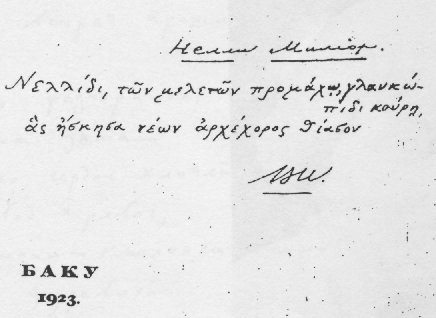 Нелли Миллиор.
Νελλίδι, τῶν μελετῶν προμάχῳ, γλαυκώ-
πιδι κούρῃ,
ἃς ἤσκησα νέων ἀρχέχορος θίασον
БАКУ
1923.